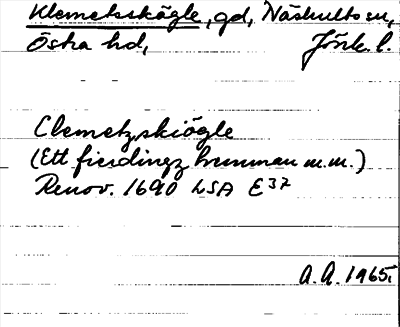 Klemetsskögle, gd, Näshults sn,
Östra hd, Jönk. l.
Clemetzskiögle
(Ett fierdingz hemman m.m.)
Renov. 1690 LSA E37
A.A. 1965